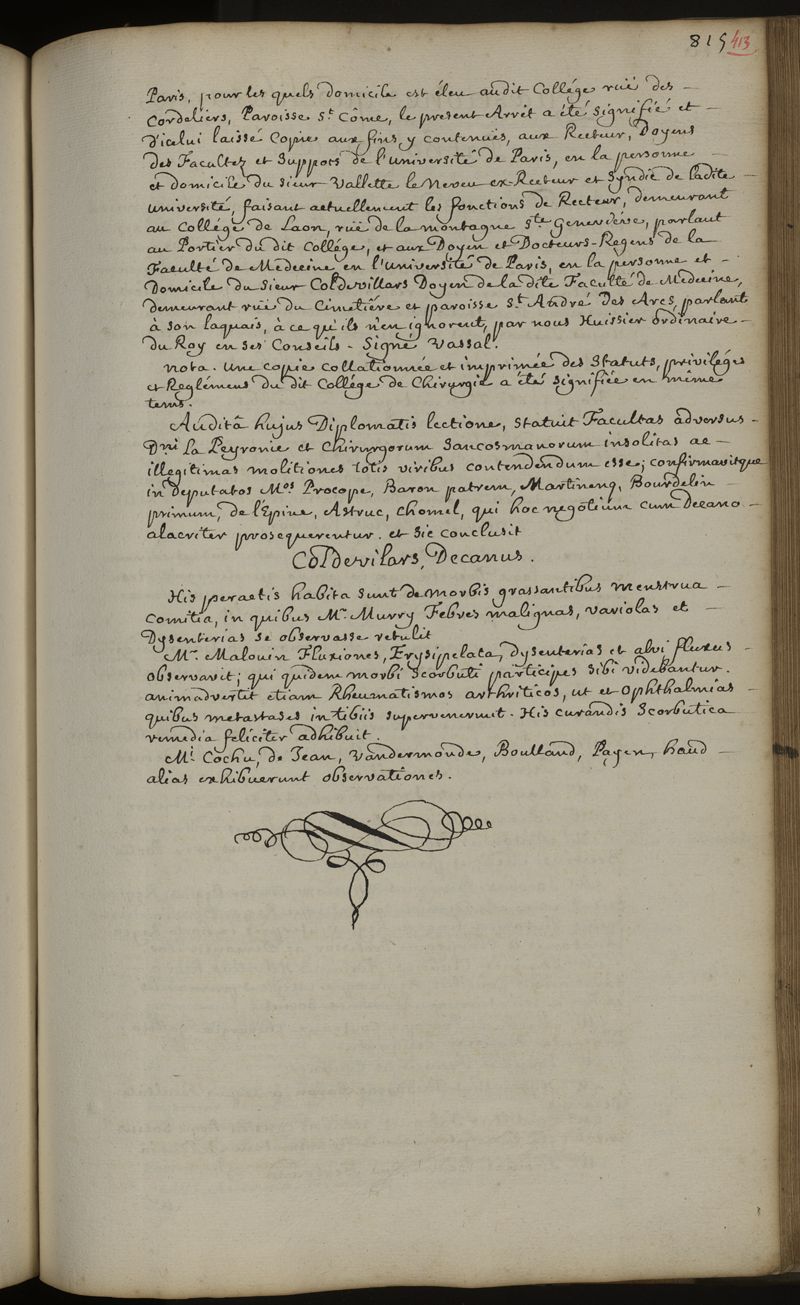 815 413
Paris, pour les quels domicile est éleu audit Collége ruë des
Cordeliers, Paroisse St. Côme, le present Arrêt a été signifié et
d'icelui laissé Copie aux fins y contenuës, aux Recteur, Doyens
des Facultez et Supposts de l'université de Paris, en la personne
et domicile du sieur Vallette le Neveu ex-Recteur et Syndic de ladite
université, faisant actuellement les fonctions de Recteur, demeurant
au Collége de Laon, ruë de la montagne Ste. Genevieve, parlant
au Portier du dit Collége, et aux Doyen et Docteurs-Regens de la
Faculté de Medecine en l'université de Paris, en la personne et
Domicile du sieur Coldevillars Doyen de la dite Faculté de Medecine,
demeurant ruë du Cimetiére et paroisse St. André Des Arcs, parlant
à son laquais, à ce qu'ils n'en ignorent, par nous Huissier ordinaire
du Roy en ses Conseils. Signé Vassal.
nota. une copie collationnée et imprimée des Statuts, priviléges
et Reglémens du dit Collége de Chirurgie a été signifiée en même
tems.
Auditâ hujus Diplomatis lectione, statuit Facultas adversus
Dni La Peyronie et Chirurgorum Sancosmanorum insolitas ac
illegitimas molitiones totis viribus contendendum esse; confirmavitque
in deputatos Mos Procope, Baron patrem, Martinenq, Bourdelin
primum, de l'Epine, Astruc, Chomel, qui hoc negotium cum Decano
alacriter prosequerentur. et sic conclusit
Coldevilars, Decanus.
His peractis habita sunt de morbis grassantibus menstrua
Comitia, in quibus Mr. Murry Febres malignas, variolas et
Dysenterias se observasse retulit
Mr. Malouin Fluxiones, Erysipelata, dysenterias et alvi fluxus
observavit; qui quidem morbi scorbuti participes sibi videbantur.
animadvertit etiam Rheumatismos arthriticos, ut et ophthalmias
quibus metastases in tibiis supervenerunt. His curandis scorbutica
remedia feliciter adhibuit.
Mi. Cochu, de Jean, Vandermonde, Boulland, Payen, haud
alias exhibuerunt observationes.